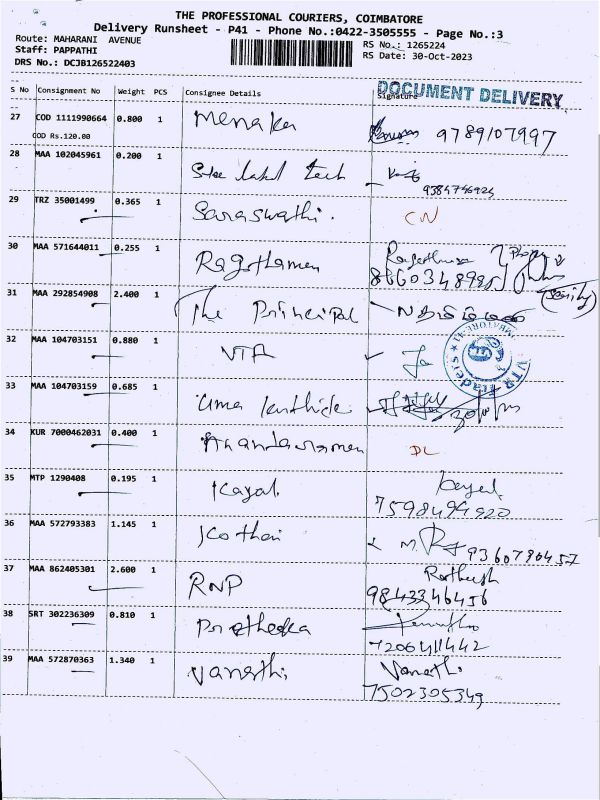 THE PROFESSIONAL COURIERS, COIMBATORE
Delivery Runsheet - P41 - Phone No.:0422-3505555 - Page No.:3
Route: MAHARANI AVENUE
RS No.: 1265224
Staff: PAPPATHI
RS Date: 30-Oct-2023
DRS No.: DCJB126522403
DOCUMENT DELIVERY
S No Consignment No Weight PCS Consignee Details Signature
27 COD 1111990664 0.800 1 Menaka 9789107997
COD Rs.120.00
28 MAA 102045961 0.200 1 Sree Tech
9384746924
29 TRZ 35001499 0.365 1 Saraswathi. CN
30 MAA 571644011 0.255 1 Ragothaman
8660348985
31 MAA 292854908 2.400 1 The Principal
32 MAA 104703151 0.880 1 VTR
VTR Traders
33 MAA 104703159 0.685 1 Uma
34 KUR 7000462031 0.400 1 Anandaraman DL
35 MTP 1290408 0.195 1 Kayal Kayal
7598494920
36 MAA 572793383 1.145 1 Kothai
9360796457
37 MAA 862405301 2.600 1 RNP
9843346456
38 SRT 302236309 0.810 1
7206411442
39 MAA 572870363 1.340 1 Vanathi Vanathi
7502305349